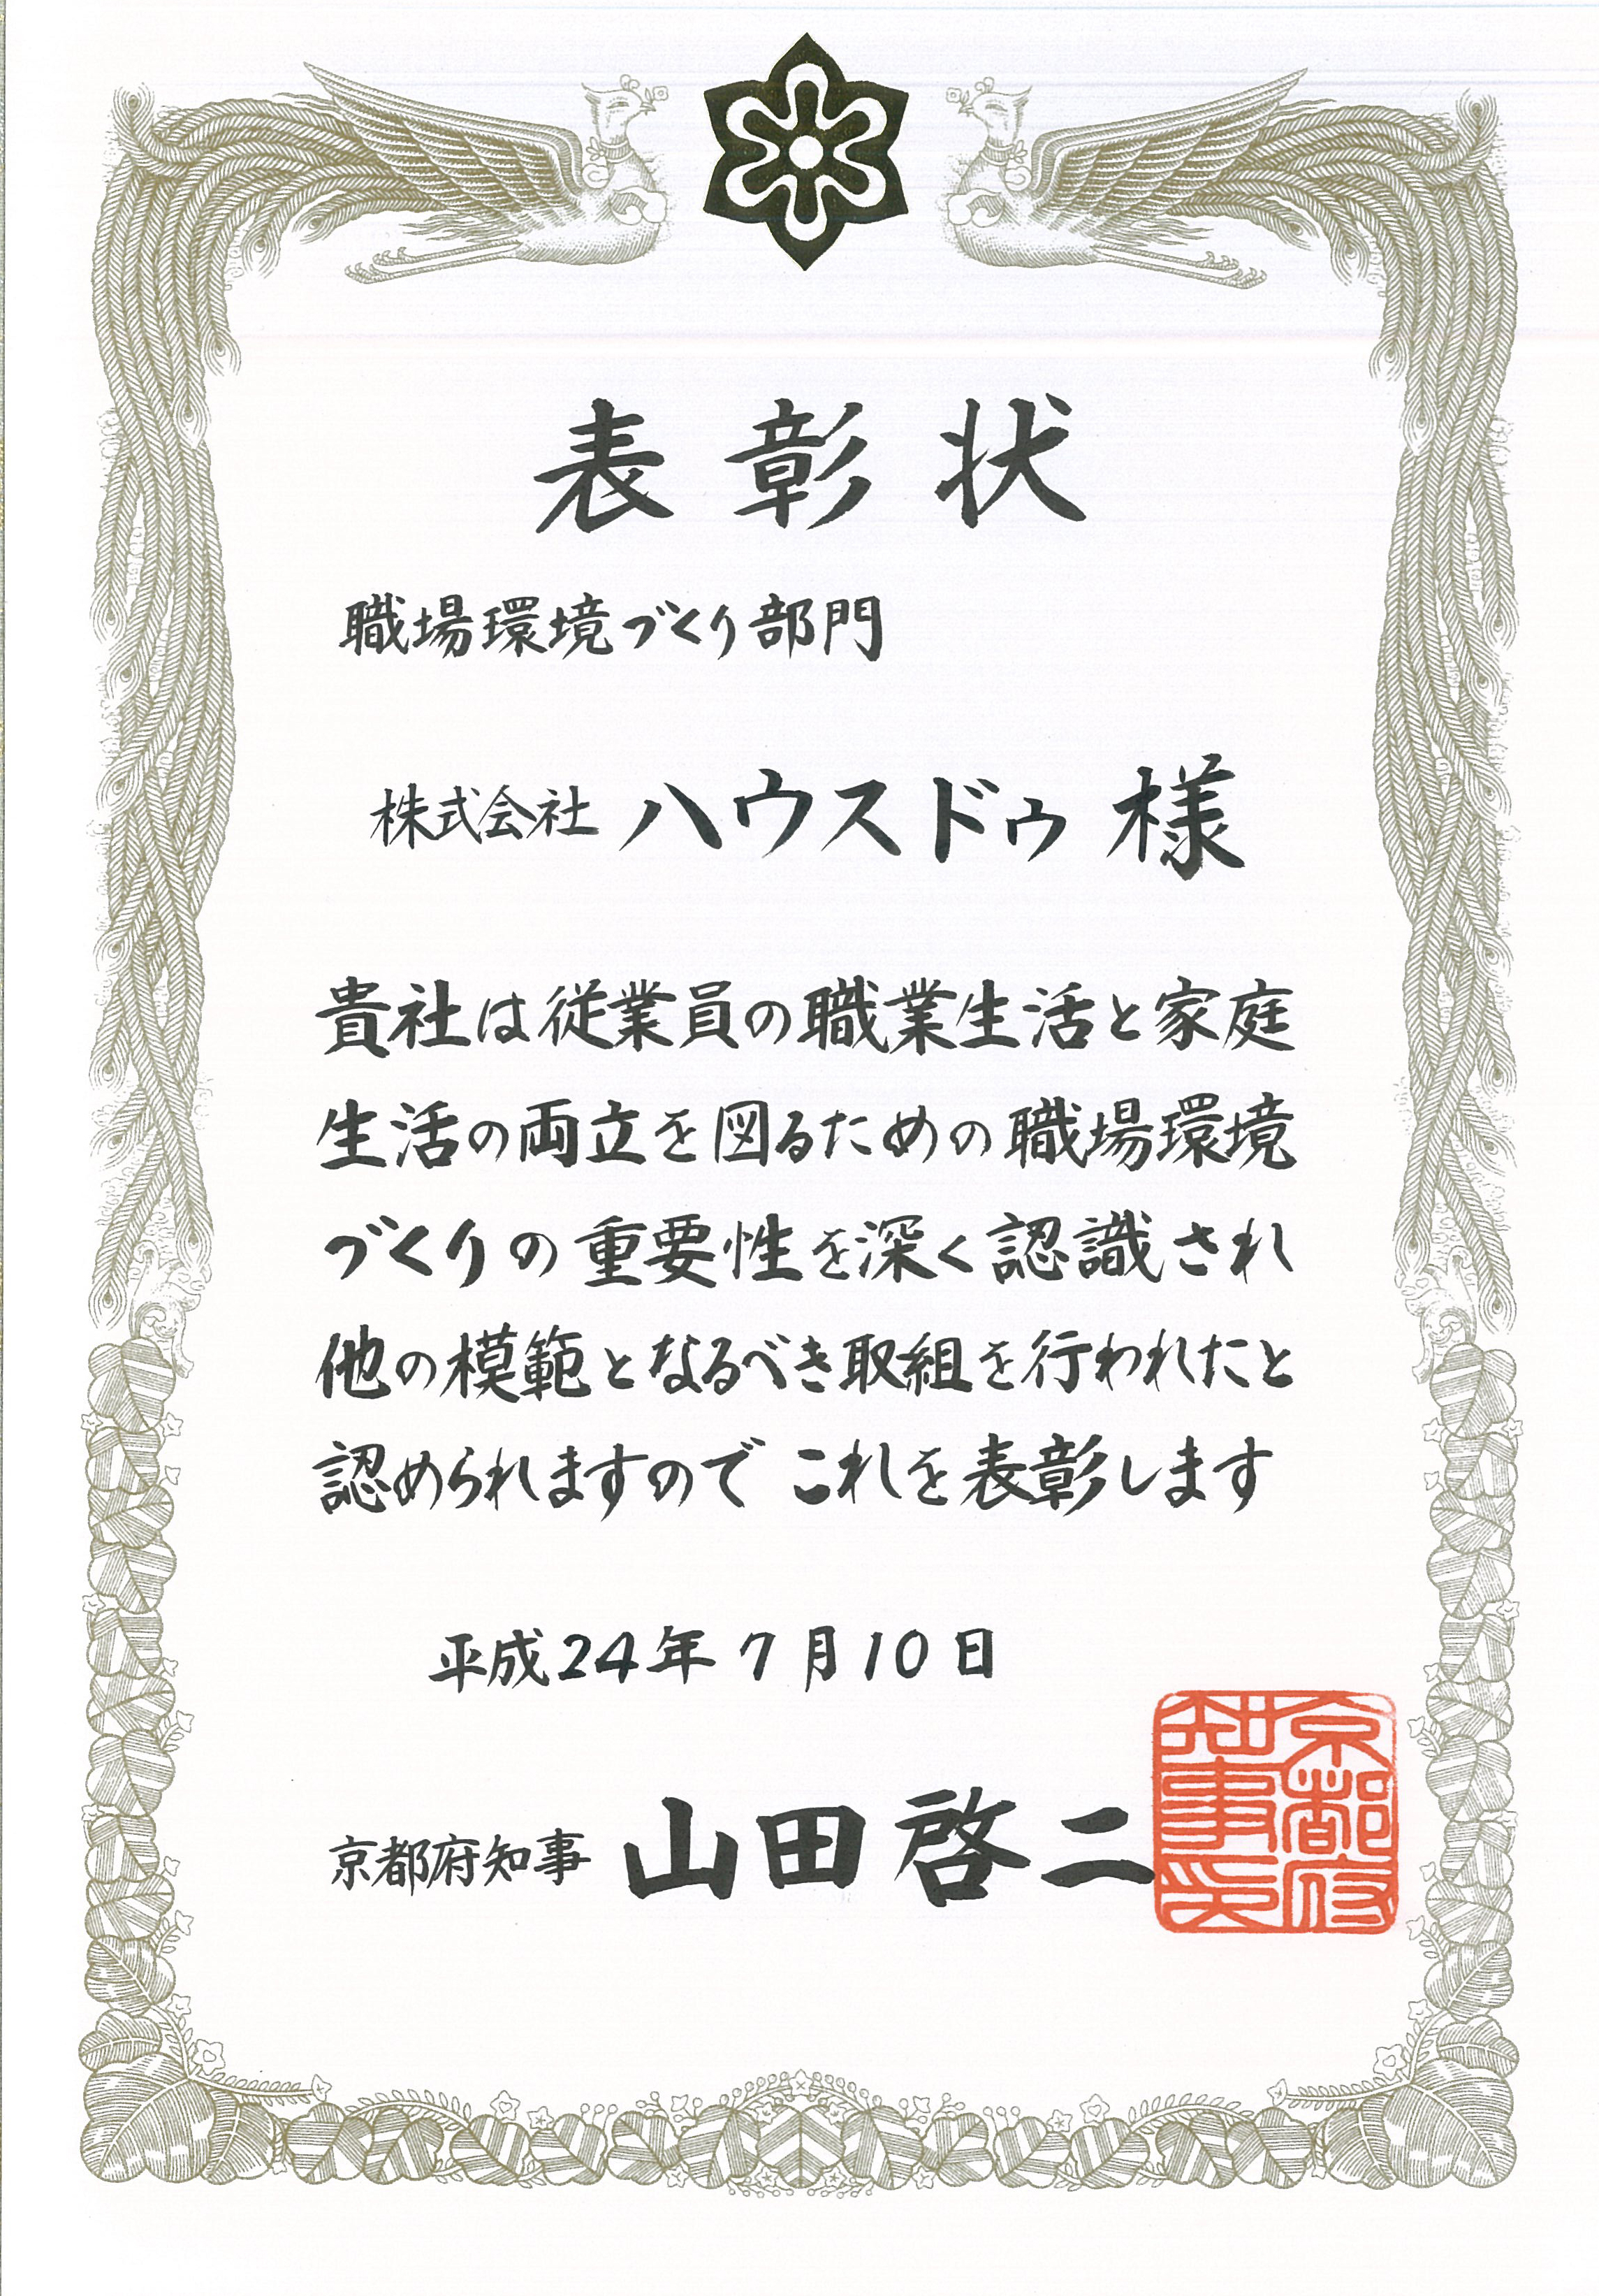 表彰状
職場環境づくり部門
株式会社 ハウスドゥ 様
貴社は従業員の職業生活と家庭
生活の両立を図るための職場環境
づくりの重要性を深く認識され
他の模範となるべき取組を行われたと
認められますので これを表彰します
平成24年7月10日
京都府知事 山田啓二
京都府
知事印